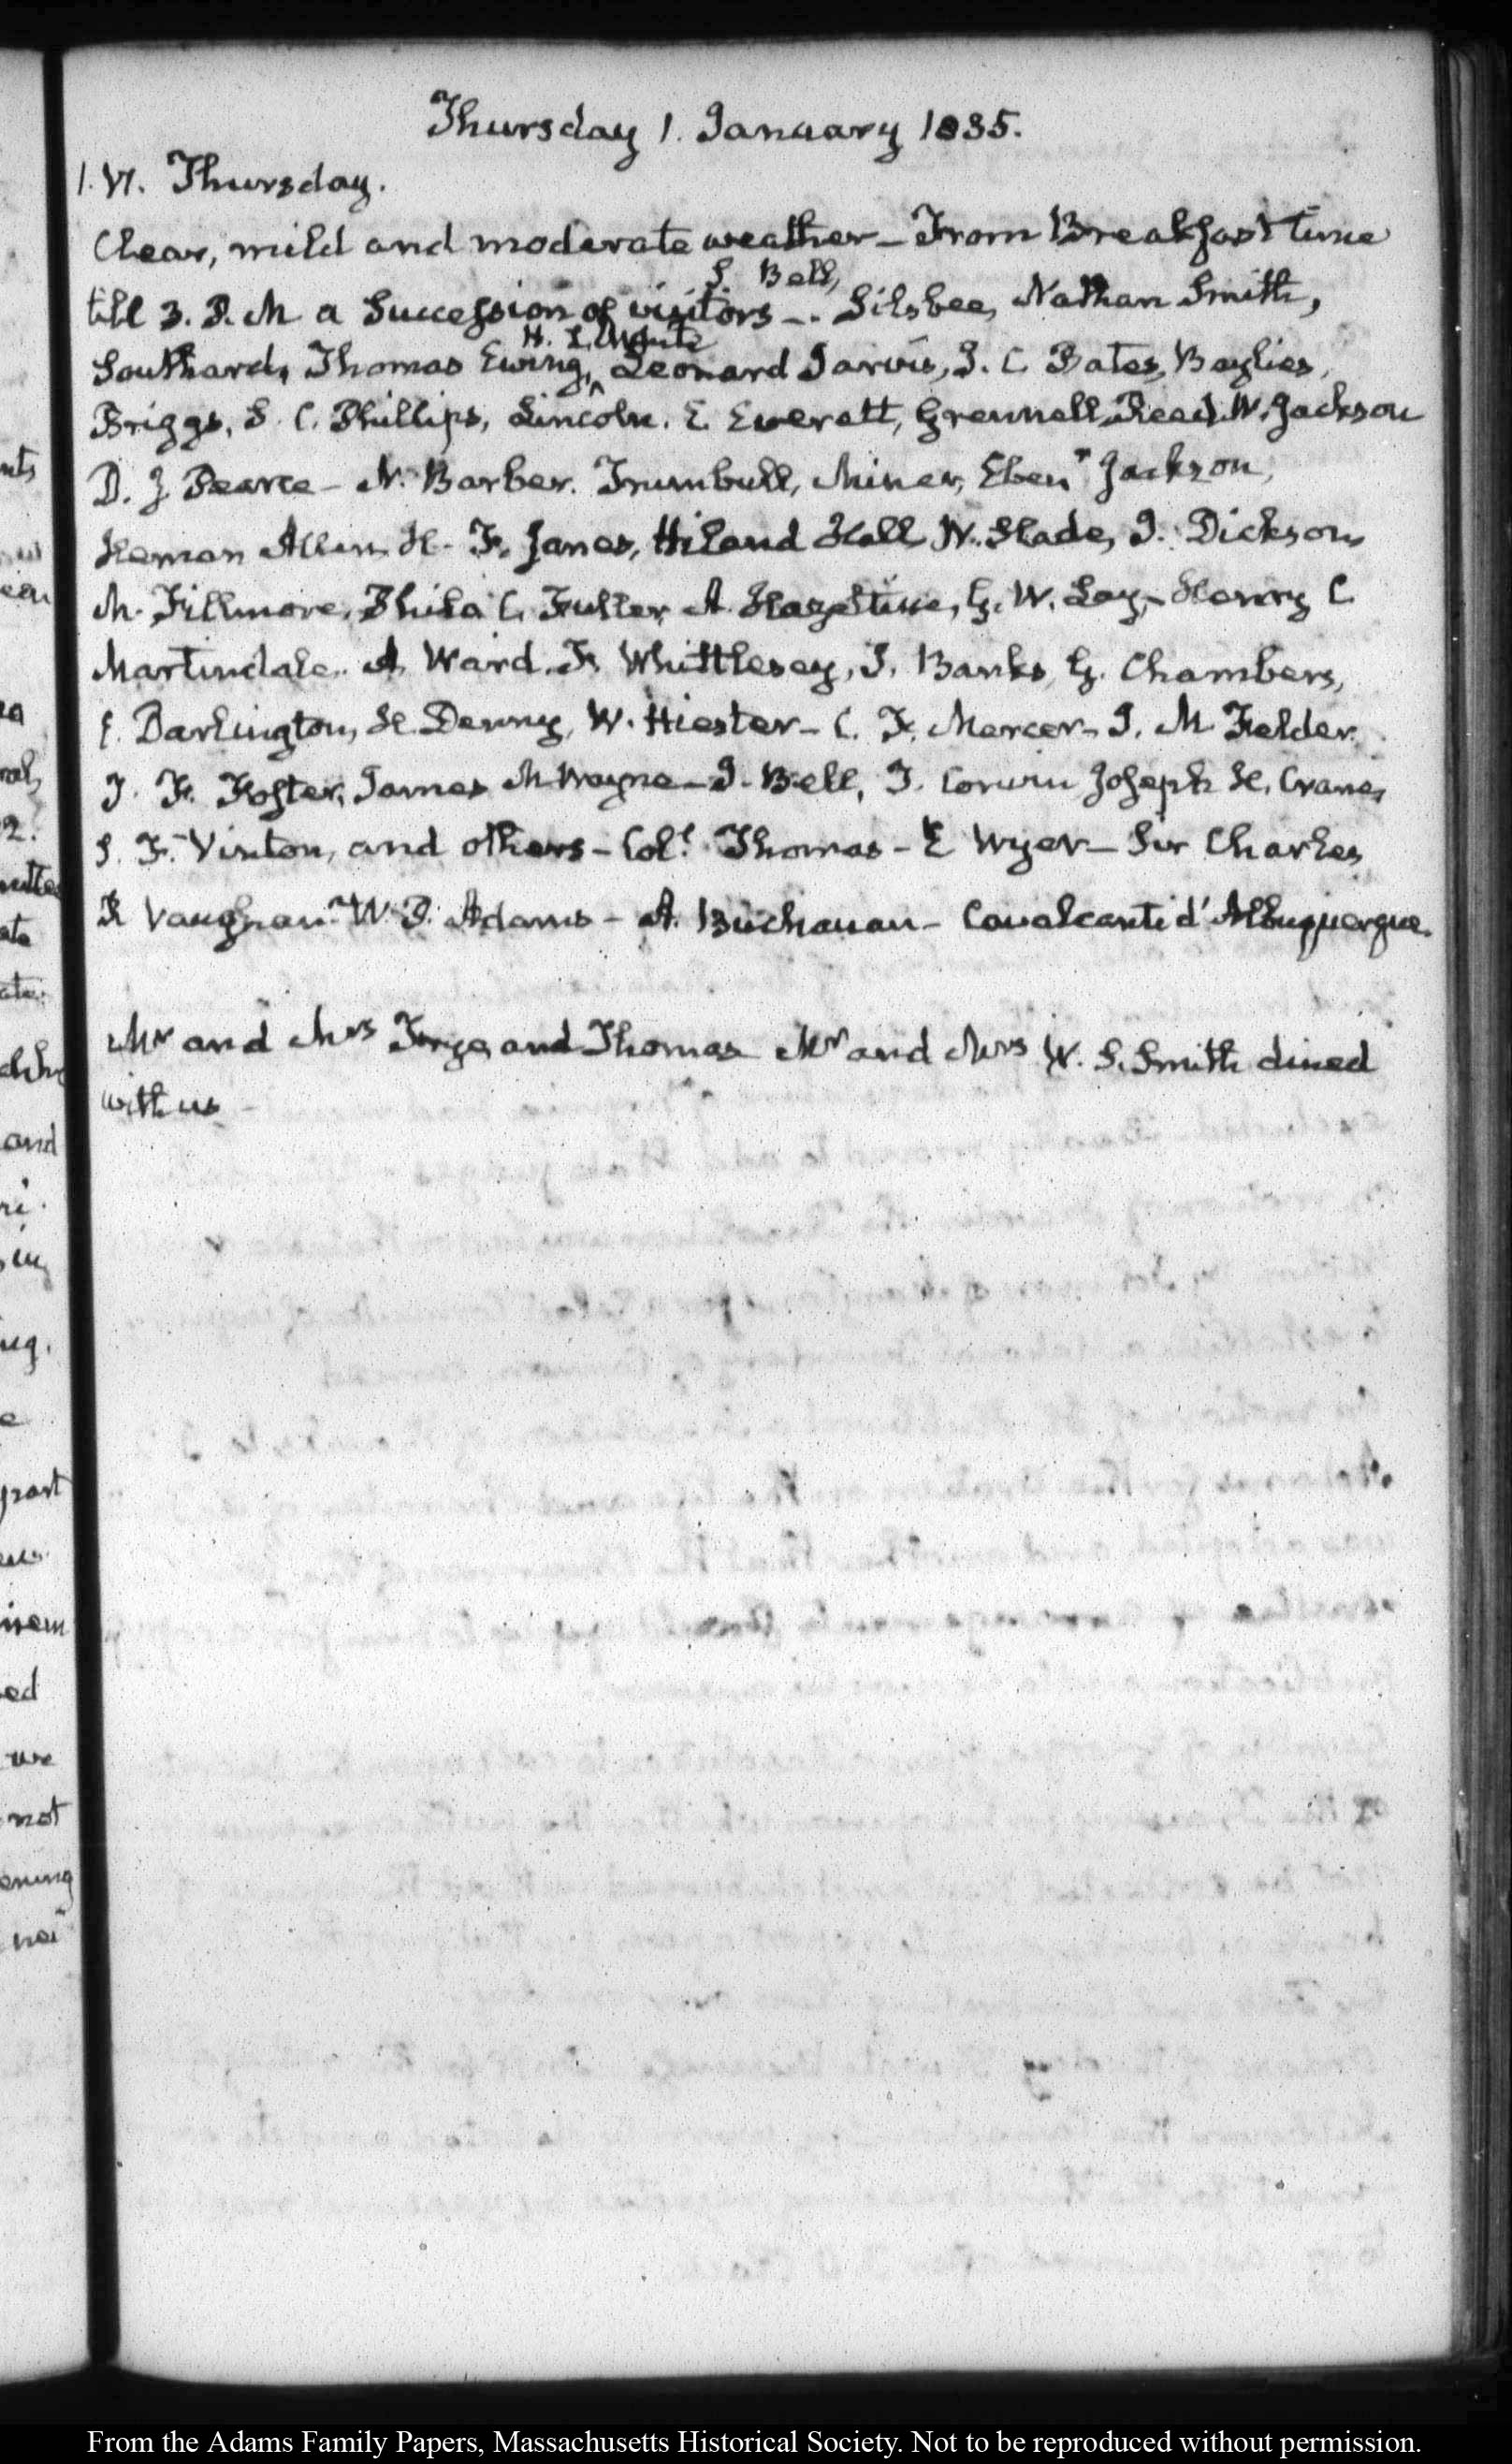 Thursday 1. January 1835.
1. VI. Thursday.
Clear, mild and moderate weather – From Breakfast time
S. Bell,
till 3. P. M a Succession of visitors –. Silsbee, Nathan Smith,
H. L. White
Southard, Thomas Ewing, ^ Leonard Jarvis, I. C. Bates, Baylies,
Briggs, S. C. Phillips, Lincoln. E. Everett, Grennell, Reed, W. Jackson
D. J Pearce – N. Barber. Trumbull, Miner, Ebenr Jackson,
Heman Allen H. F. Janes, Hiland Hall, W. Slade, J. Dickson,
M. Fillmore, Phila C. Fuller A. Hazeltine, G. W. Lay, – Henry C
Martindale. A Ward. F. Whittlesey, J. Banks, G. Chambers,
E. Darlington, H. Denny, W. Hiester – C. F. Mercer – J. M Felder.
T. F. Foster, James M Wayne – J. Bell, T. Corwin Joseph H. Crane,
S. F. Vinton, and others – Coll. Thomas – E Wyer – Sir Charles
R Vaughan. W. P. Adams – A. Buchanan – Cavalcanti d'Albuquerque.
Mr and Mrs Frye, and Thomas Mr and Mrs W. S. Smith dined
with us
nts
eau
ral,
2.
ate
ate
and
in
ing,
e
part
ed
we
not
ening
nor
From the Adams Family Papers, Massachusetts Historical Society. Not to be reproduced without permission.